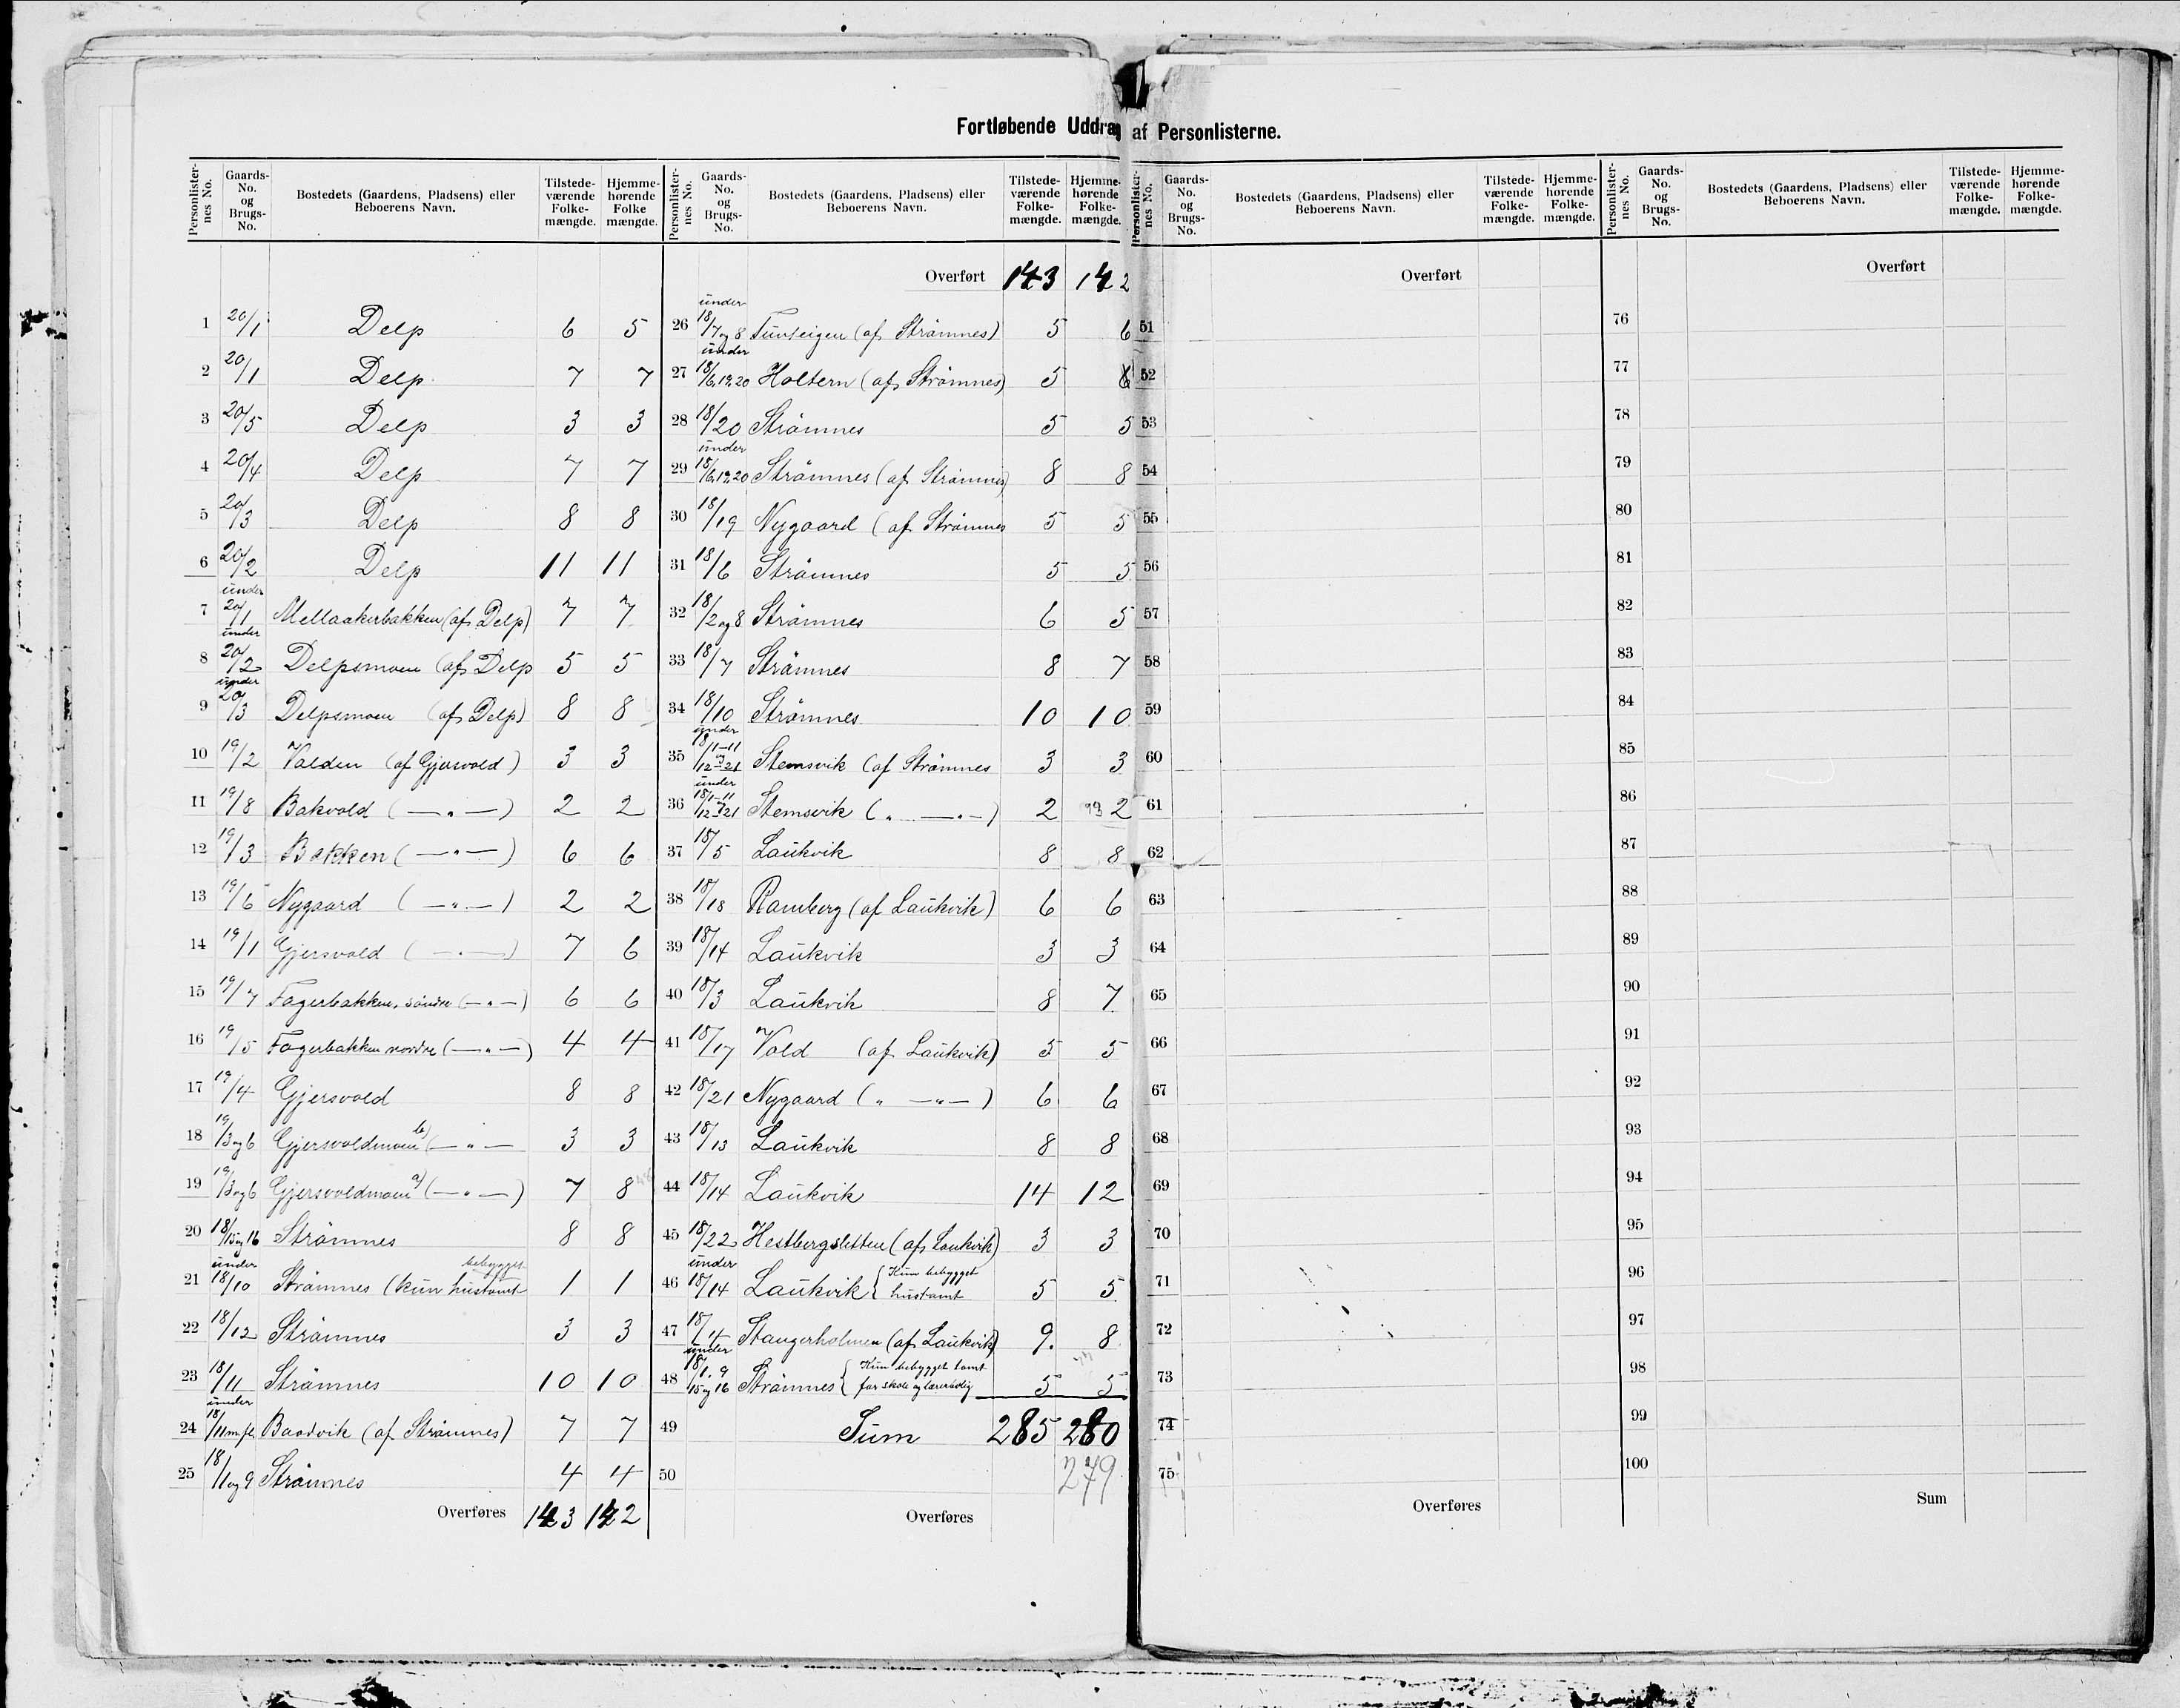 Fortløbende Uddrag af Personlisterne.
Personlister-nes No. | Gaards-No. og Brugs-No. | Bostedets (Gaardens, Pladsens) eller Beboerens Navn. | Tilstede-værende Folke-mængde. | Hjemme-hørende Folke mængde.
1 20/1 Delp 6 5
2 20/1 Delp 7 7
3 20/5 Delp 3 3
4 20/4 Delp 7 7
5 20/3 Delp 8 8
6 20/2 Delp 11 11
7 under 20/1 Mellaakerbakken (af Delp) 7 7
8 under 20/2 Delpsmoen (af Delp 5 5
9 under 20/3 Delpsmoen (af Delp) 8 8
10 19/2 Valden (af Gjersvold) 3 3
11 19/8 Bakvold ( — " — ) 2 2
12 19/3 Bakken ( — " — ) 6 6
13 19/6 Nygaard ( — " — ) 2 2
14 19/1 Gjersvold ( — " — ) 7 6
15 19/7 Fagerbakken, söndre ( — " — ) 6 6
16 19/5 Fagerbakken nordre ( — " — ) 4 4
17 19/4 Gjersvold 8 8
18 19/3 og 6 Gjersvoldmoen b) ( — " — 3 3
19 19/3 og 6 Gjersvoldmoen a) ( — " — ) 7 8
20 18/15 og 16 Strömnes 8 8
21 under 18/10 Strömnes (kun bebygget hustomt 1 1
22 18/12 Strömnes 3 3
23 18/11 Strömnes 10 10
24 under 18/11 m.fl. Baadvik (af Strömnes) 7 7
25 18/1 og 9 Strömnes 4 4
Overføres 143 142
Personlister-nes No. | Gaards-No. og Brugs-No. | Bostedets (Gaardens, Pladsens) eller Beboerens Navn. | Tilstede-værende Folke-mængde. | Hjemme-hørende Folke-mængde.
Overført 143 142
26 under 18/7 og 8 (af Strömnes) 5 6
27 under 18/6,19,20 Holtern (af Strömnes) 5 6
28 18/20 Strömnes 5 5
29 under 18/6,19,20 Strömnes (af Strömnes) 8 8
30 18/19 Nygaard (af Strömnes 5 5
31 18/6 Strömnes 5 5
32 18/2 og 8 Strömnes 6 5
33 18/7 Strömnes 8 7
34 18/10 Strömnes 10 10
35 under 18/1-11 og 12-21 Stemsvik (af Strömnes 3 3
36 under 18/1-11 og 12-21 Stemsvik ( " — " — ) 2 93 2
37 18/5 Laukvik 8 8
38 18/18 Ramberg (af Laukvik) 6 6
39 18/14 Laukvik 3 3
40 18/3 Laukvik 8 7
41 18/17 Vold (af Laukvik) 5 5
42 18/21 Nygaard ( " — " — ) 6 6
43 18/13 Laukvik 8 8
44 18/14 Laukvik 14 12
45 18/22 Hestbergsletten (af Laukvik) 3 3
46 under 18/14 Laukvik { Kun bebygget hustomt 5 5
47 18/4 Stangerholmen (af Laukvik) 9. 8
48 under 18/1.9 15 og 16 Strömnes { Kun bebygget tomt for skole og lærerbolig 5 5
49 Sum 285 280
50 279
Overføres
Personlister-nes No. | Gaards-No. og Brugs-No. | Bostedets (Gaardens, Pladsens) eller Beboerens Navn. | Tilstede-værende Folke-mængde. | Hjemme-hørende Folke-mængde.
Overført
51
52
53
54
55
56
57
58
59
60
61
62
63
64
65
66
67
68
69
70
71
72
73
74
75
Overføres
Personlister-nes No. | Gaards-No. og Brugs-No. | Bostedets (Gaardens, Pladsens) eller Beboerens Navn. | Tilstede-værende Folke-mængde. | Hjemme-hørende Folke-mængde.
Overført
76
77
78
79
80
81
82
83
84
85
86
87
88
89
90
91
92
93
94
95
96
97
98
99
100
Sum